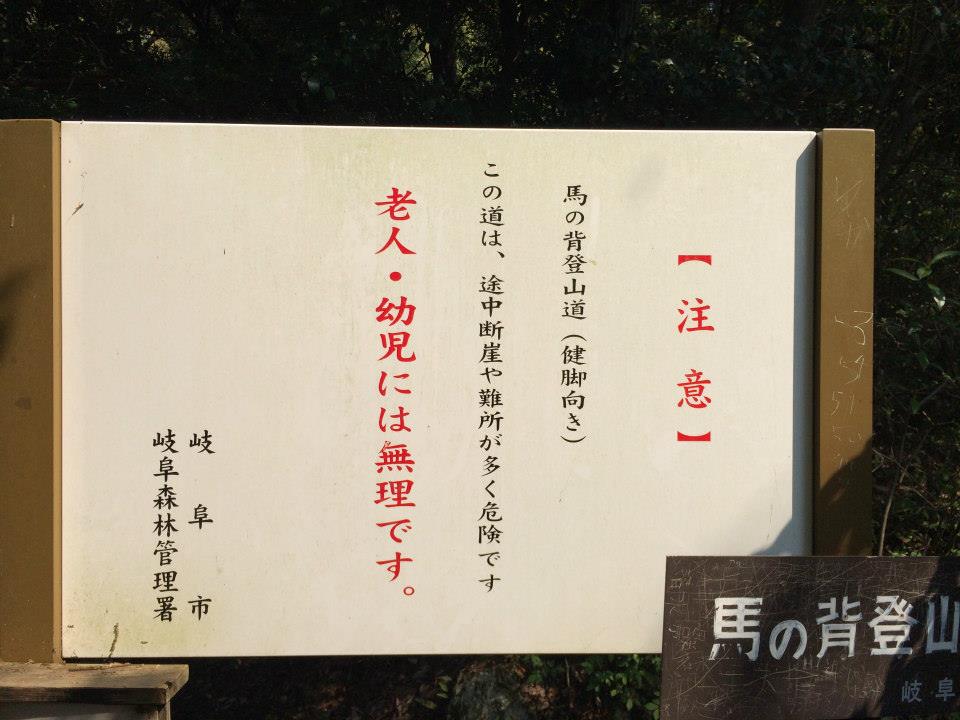 【注意】
馬の背登山道(健脚向き)
この道は、途中断崖や難所が多く危険です
老人・幼児には無理です。
岐阜市
岐阜森林管理署
馬の背登山
岐阜